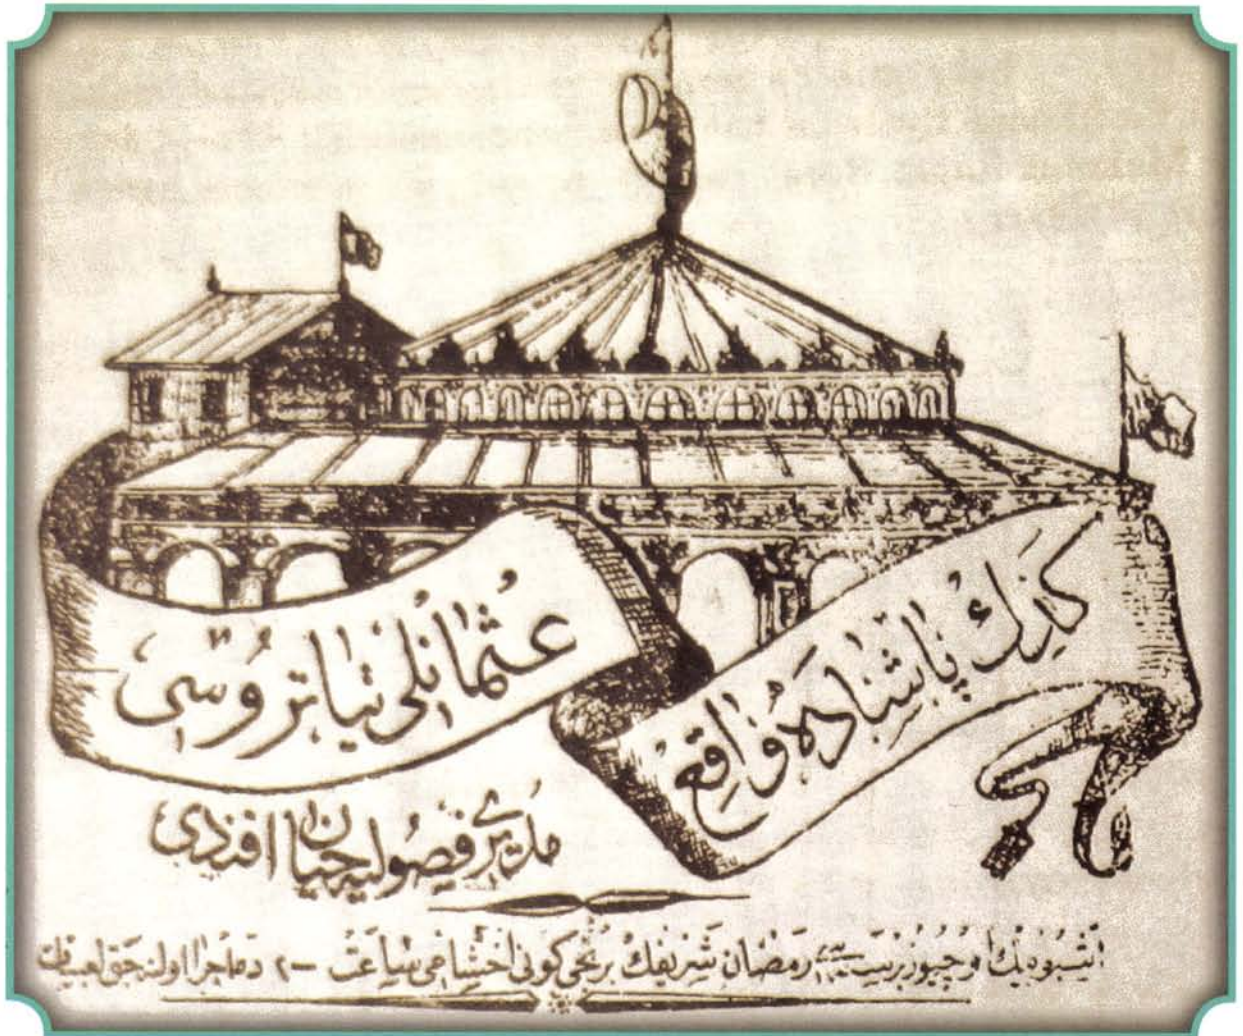 كدك پاشاده واقع
عثمانلی تیاتروسی
مدیری فصولیه جیان افندی
اشبو بیك اوچیوز رمضان شریفك برنجی كونی اخشامی ساعت — ۲ ده اجرا اولنه جق لعبیات